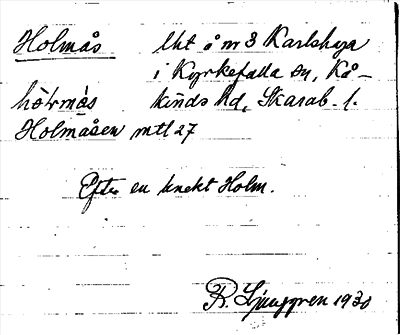 Holmås lht å nr 3 Karlshaga
i Kyrkefalla sn, Kå-
hòlmås kinds hd, Skarab. l.
Holmåsen mtl 27
Efter en knekt Holm.
R. Ljunggren 1930